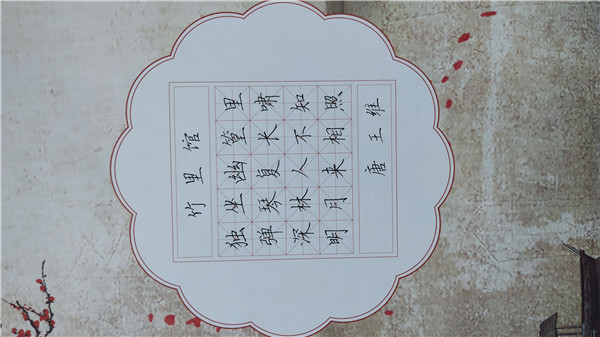 竹里馆
独坐幽篁里
弹琴复长啸
深林人不知
明月来相照
唐 王维